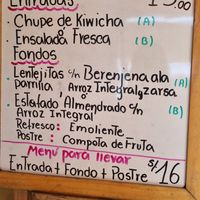 Entradas 15.00
• Chupe de Kiwicha (A)
• Ensalada Fresca (B)
Fondos
• Lentejitas c/n Berenjena a la (A)
parrilla, Arroz Integral, zarsa
o
• Estofado Almendrado c/n (B)
Arroz Integral
Refresco: Emoliente
Postre: Compota de Fruta
Menú para llevar
Entrada + Fondo + Postre S/16